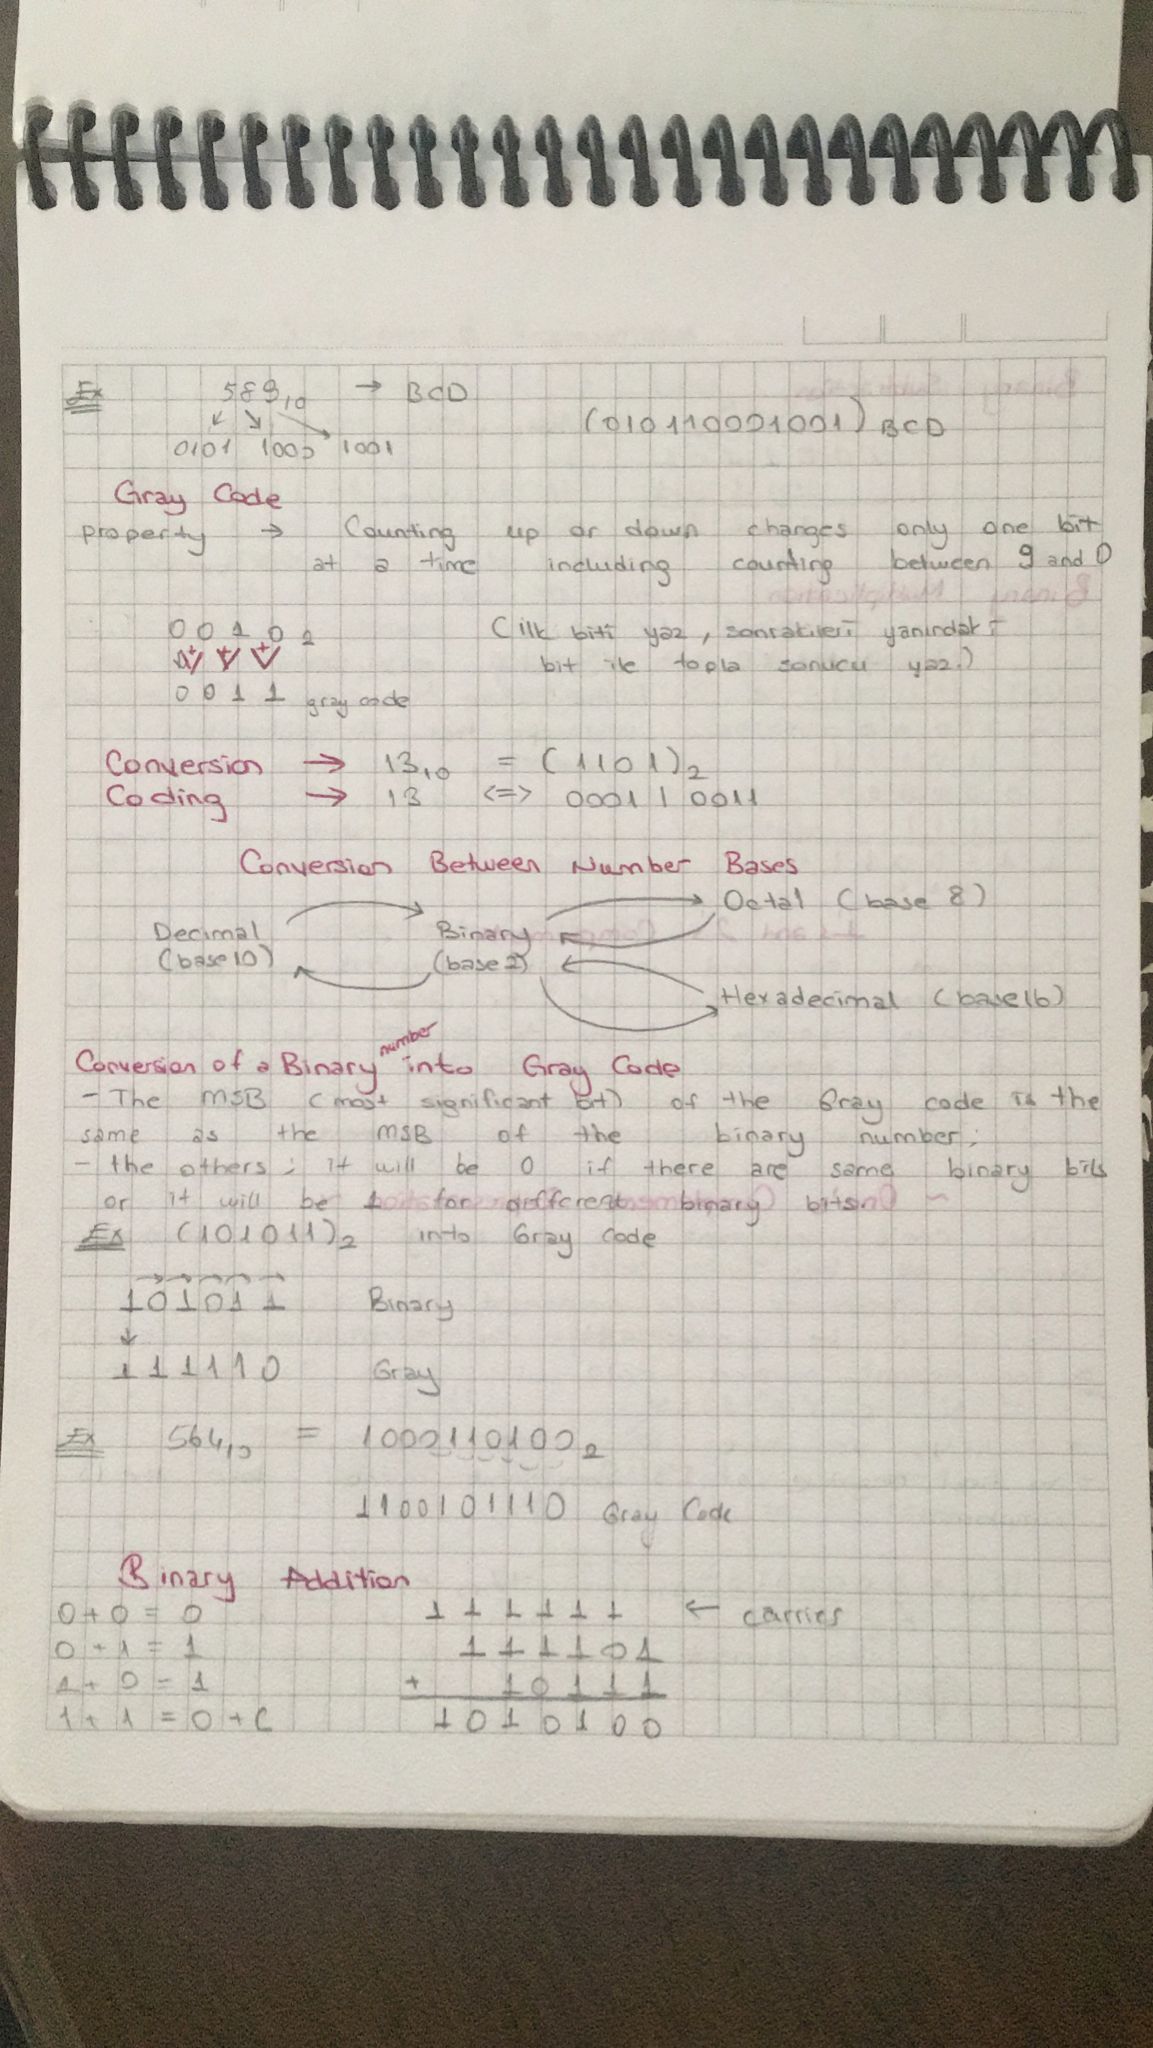 Ex 589₁₀ → BCD
0101 1000 1001 (010110001001)BCD
Gray Code
property → Counting up or down changes only one bit
at a time including counting between 9 and 0
0 0 1 0 ₂ (ilk biti yaz, sonrakileri yanındaki
bit ile topla sonucu yaz.)
0 0 1 1 gray code
Conversion → 13₁₀ = (1101)₂
Coding → 13 <=> 0001 | 0011
Conversion Between Number Bases
Octal (base 8)
Decimal Binary
(base 10) (base 2)
Hexadecimal (base 16)
Conversion of a Binary number into Gray Code
- The MSB (most significant bit) of the Gray code is the
same as the MSB of the binary number;
- the others; it will be 0 if there are same binary bits
or it will be 1 for different binary bits
Ex (101011)₂ into Gray Code
101011 Binary
111110 Gray
Ex 564₁₀ = 1000110100₂
1100101110 Gray Code
Binary Addition
0 + 0 = 0 1 1 1 1 1 1 ← carries
0 + 1 = 1 1 1 1 1 0 1
1 + 0 = 1 + 1 0 1 1 1
1 + 1 = 0 + C 1 0 1 0 1 0 0